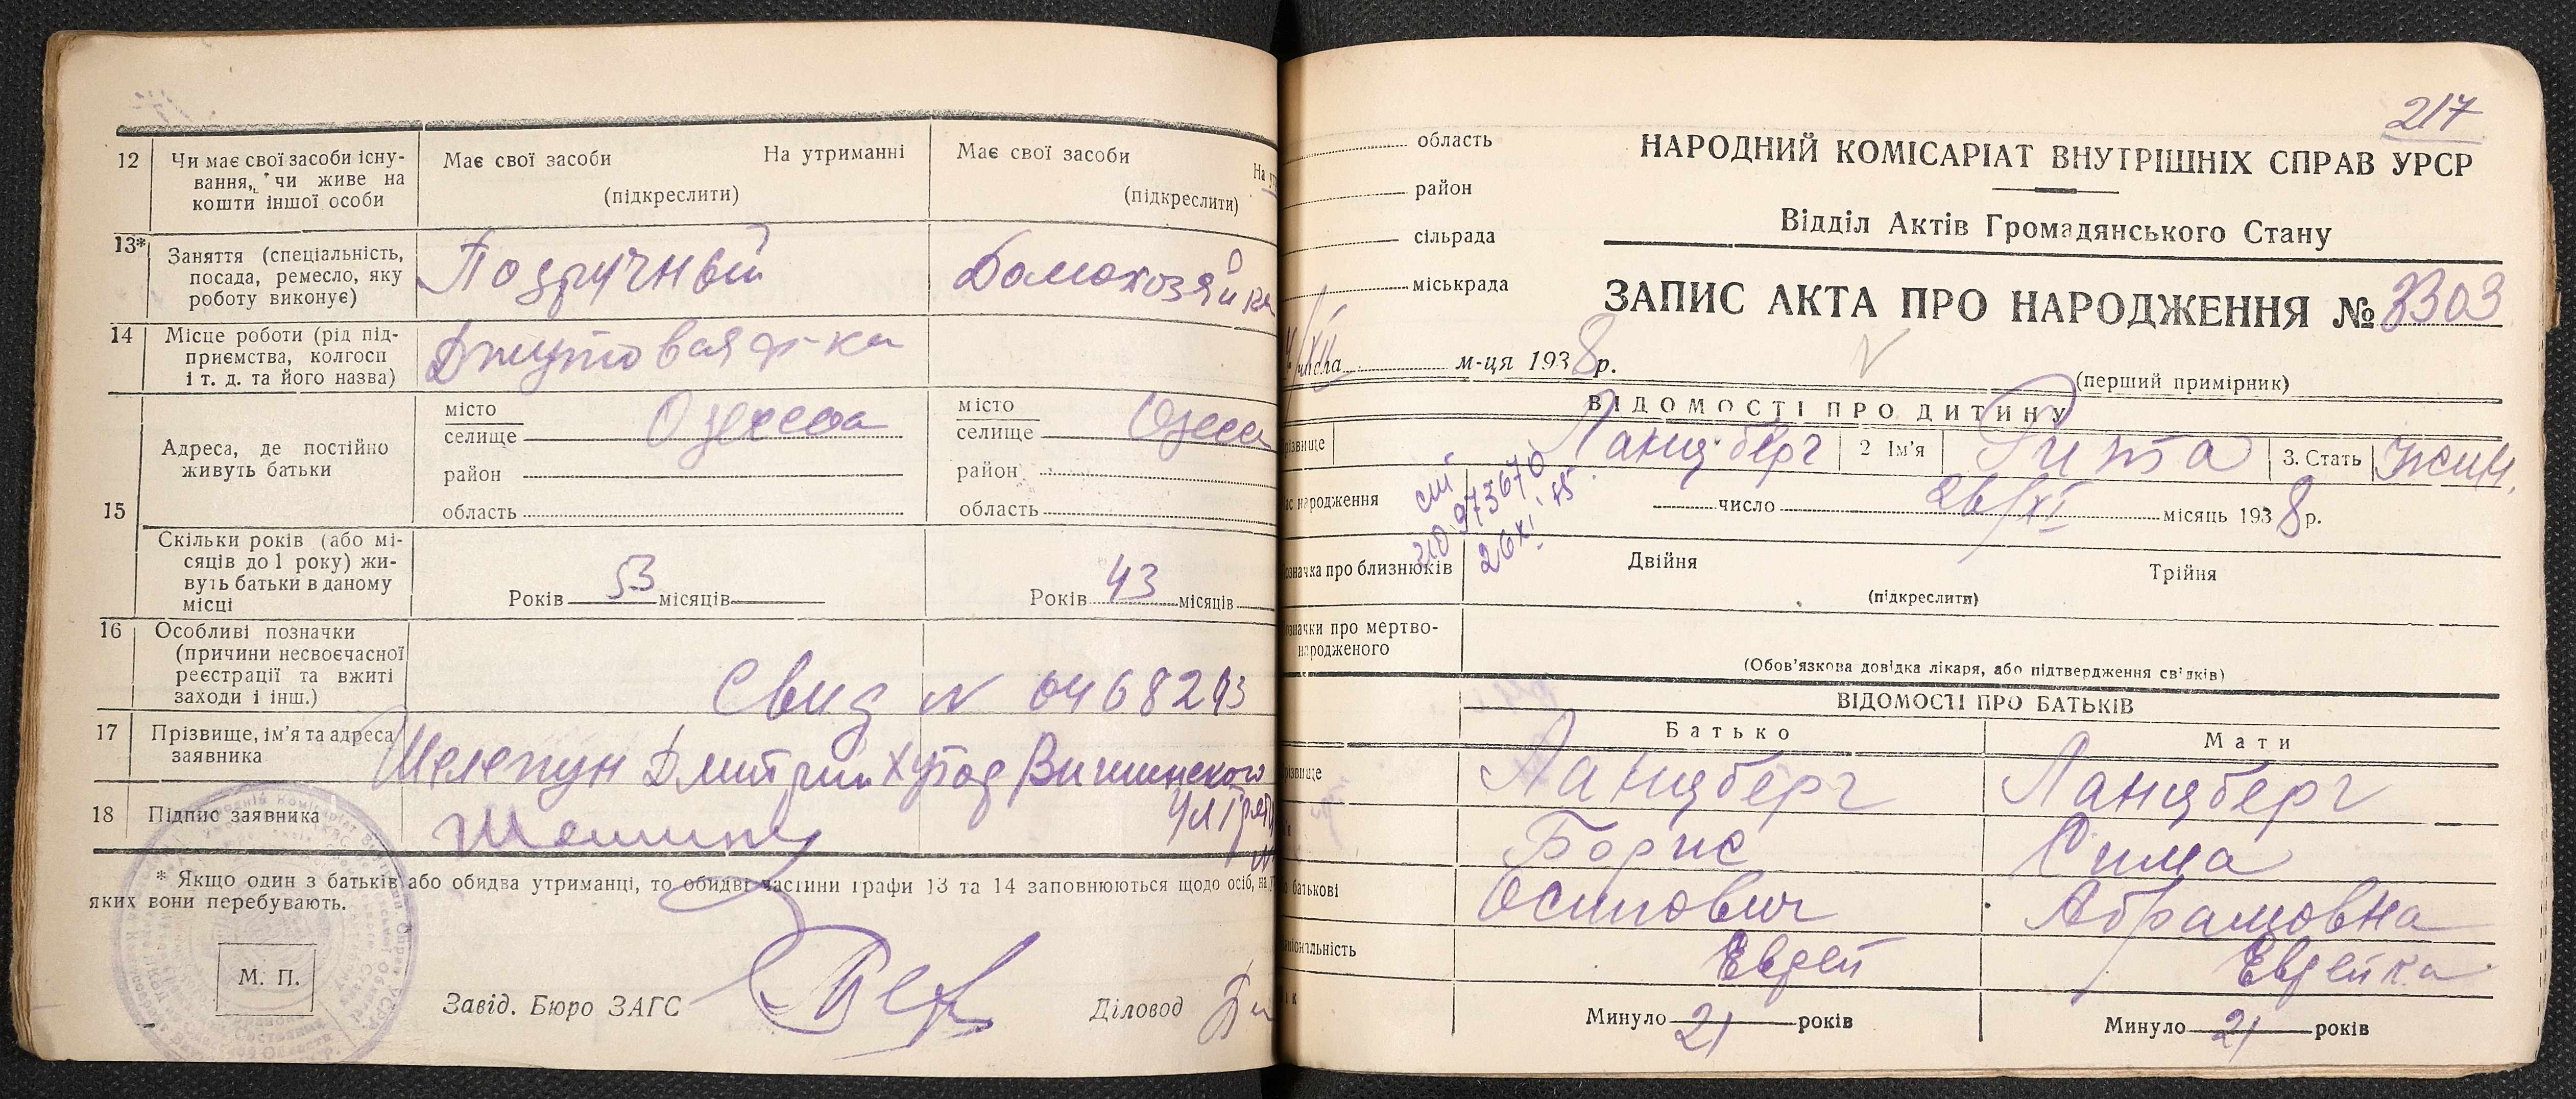 12 Чи має свої засоби існу-
вання, чи живе на
кошти іншої особи
Має свої засоби На утриманні
(підкреслити)
Має свої засоби
(підкреслити)
13* Заняття (спеціальність,
посада, ремесло, яку
роботу виконує)
Подручный
Домохозяйка
14 Місце роботи (рід під-
приємства, колгосп
і т. д. та його назва)
Джутовая ф-ка
15 Адреса, де постійно
живуть батьки
місто
селище Одесса
район
область
місто
селище
район
область
Скільки років (або мі-
сяців до 1 року) жи-
вуть батьки в даному
місці
Років 53 місяців
Років 43 місяців
16 Особливі позначки
(причини несвоєчасної
реєстрації та вжиті
заходи і інш.)
Свид N
17 Прізвище, ім'я та адреса
заявника
Дмитрий
18 Підпис заявника
* Якщо один з батьків або обидва утриманці, то обидві частини графи 13 та 14 заповнюються щодо осіб, на
яких вони перебувають.
М. П.
Завід. Бюро ЗАГС
Діловод
217
область
район
сільрада
міськрада
НАРОДНИЙ КОМІСАРІАТ ВНУТРІШНІХ СПРАВ УРСР
Відділ Актів Громадянського Стану
ЗАПИС АКТА ПРО НАРОДЖЕННЯ № 3303
м-ця 1938 р.
(перший примірник)
ВІДОМОСТІ ПРО ДИТИНУ
Ланцберг 2 Ім'я Рита 3. Стать
народження
число 26/XI місяць 1938 р.
973670
26XI
про близнюків
Двійня Трійня
(підкреслити)
про мертво-
народженого
(Обов'язкова довідка лікаря, або підтвердження свідків)
ВІДОМОСТІ ПРО БАТЬКІВ
Батько Мати
Ланцберг Ланцберг
Борис Сима
батькові Осипович Абрамовна
Еврей Еврейка
Минуло 21 років Минуло 21 років